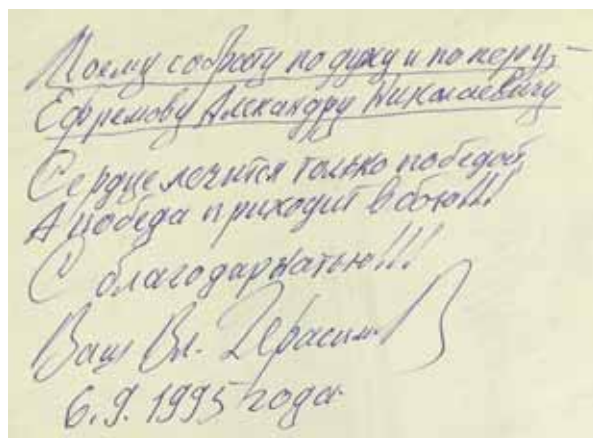 Моему собрату по духу и по перу, –
Ефремову Александру Николаевичу
Сердце лечится только победой,
А победа приходит в бою!!!
С благодарностью!!!
Ваш Вл. Герасимов
6.9.1995 года